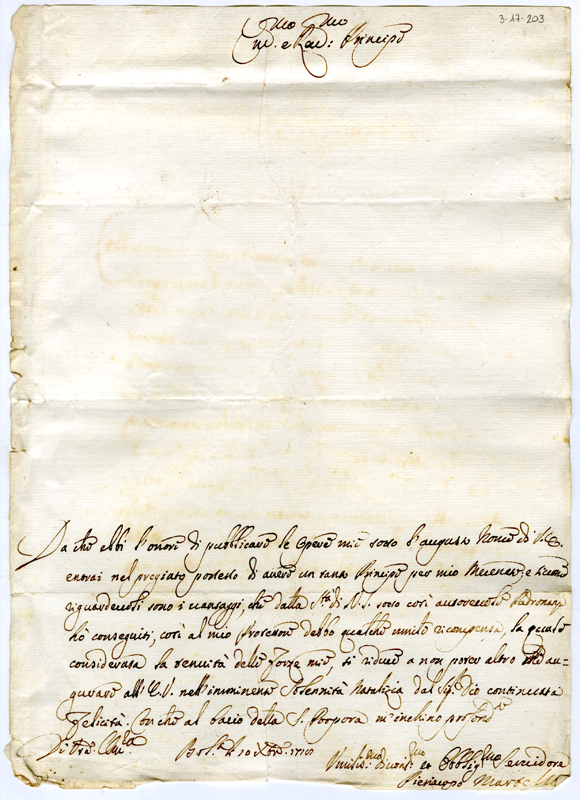 3-17-203
Em.mo e Rev.mo Principe
Da che ebbi l'onore di pubblicare le Opere mie sotto l'augusto Nome di V.E.
entrai nel pregiato possesso di avere un tanto Principe per mio Mecenate, e siccome
riguardevoli sono i vantaggi, che dalla S.tà di N.S. sotto così autorevole Padronanza
hò conseguiti, così al mio Protettore debbo qualche umile ricompensa, la quale
considerata la tenuità delle forze mie, si riduce a non poter altro che au-
gurare all'E.V. nell'imminente Solennità Natalizia dal Sig.r Dio continuata
felicità. Con che al bacio della S. Porpora m'inchino profond.te
Di Vra. Em.za
Bol.a 10 Xbre. 1710
Umiliss.mo Divotiss.mo et Obblig.mo Servidore
Pieriacopo Martelli